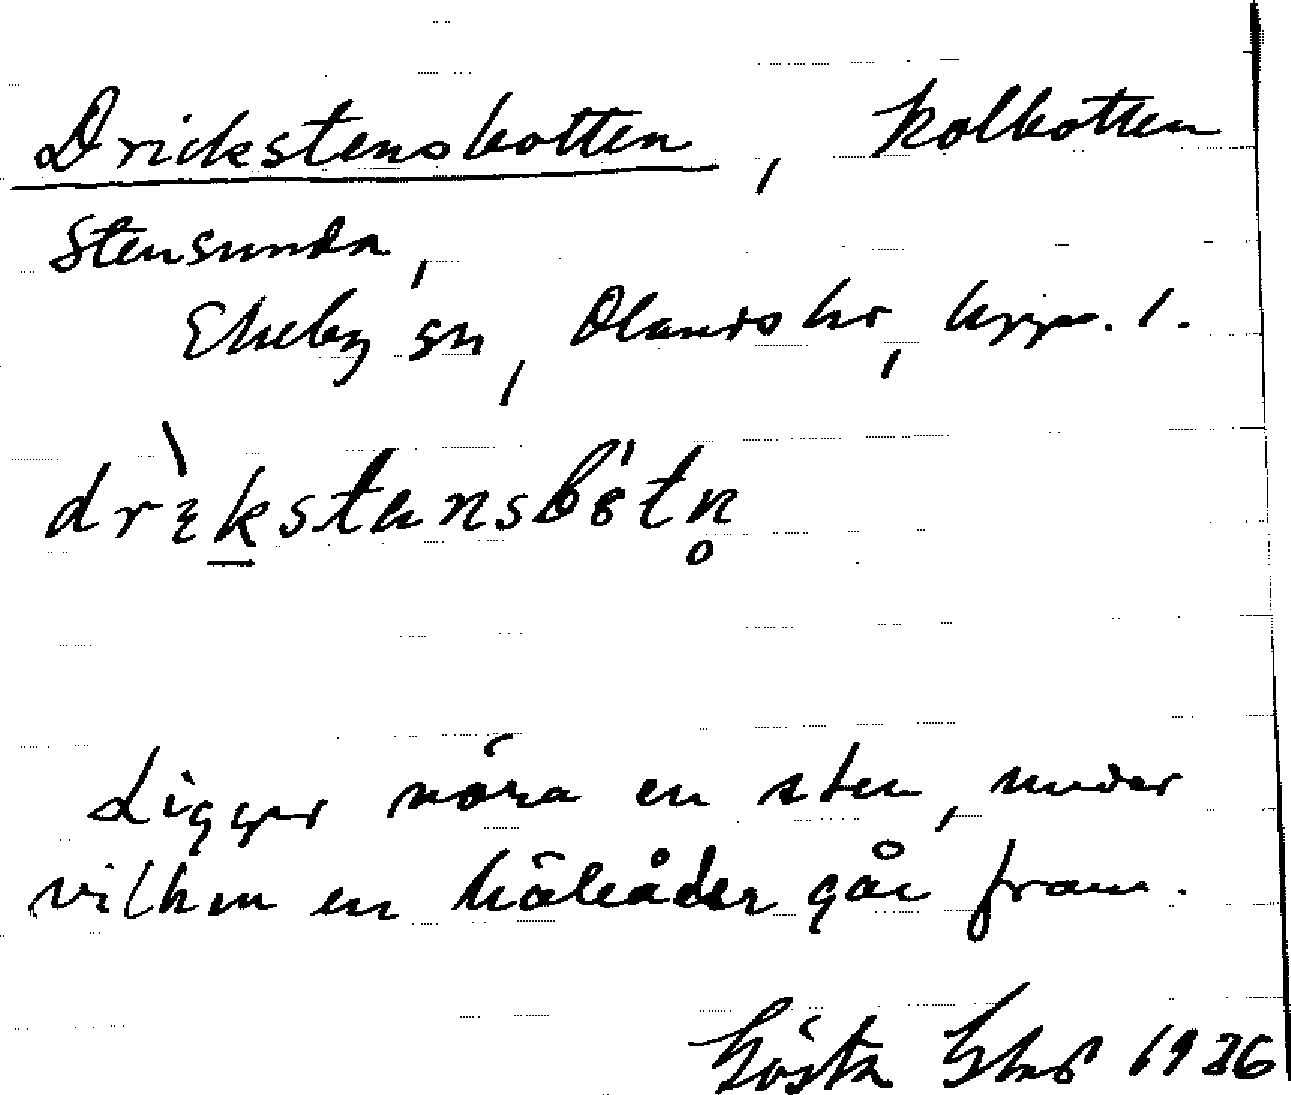 Drickstensbotten, kolbotten
Stensunda,
Ekeby sn, Olands hd, Upps. l.
drìkstensbotn̥
Ligger nära en sten, under
vilken en källåder går fram.
Gösta 1936